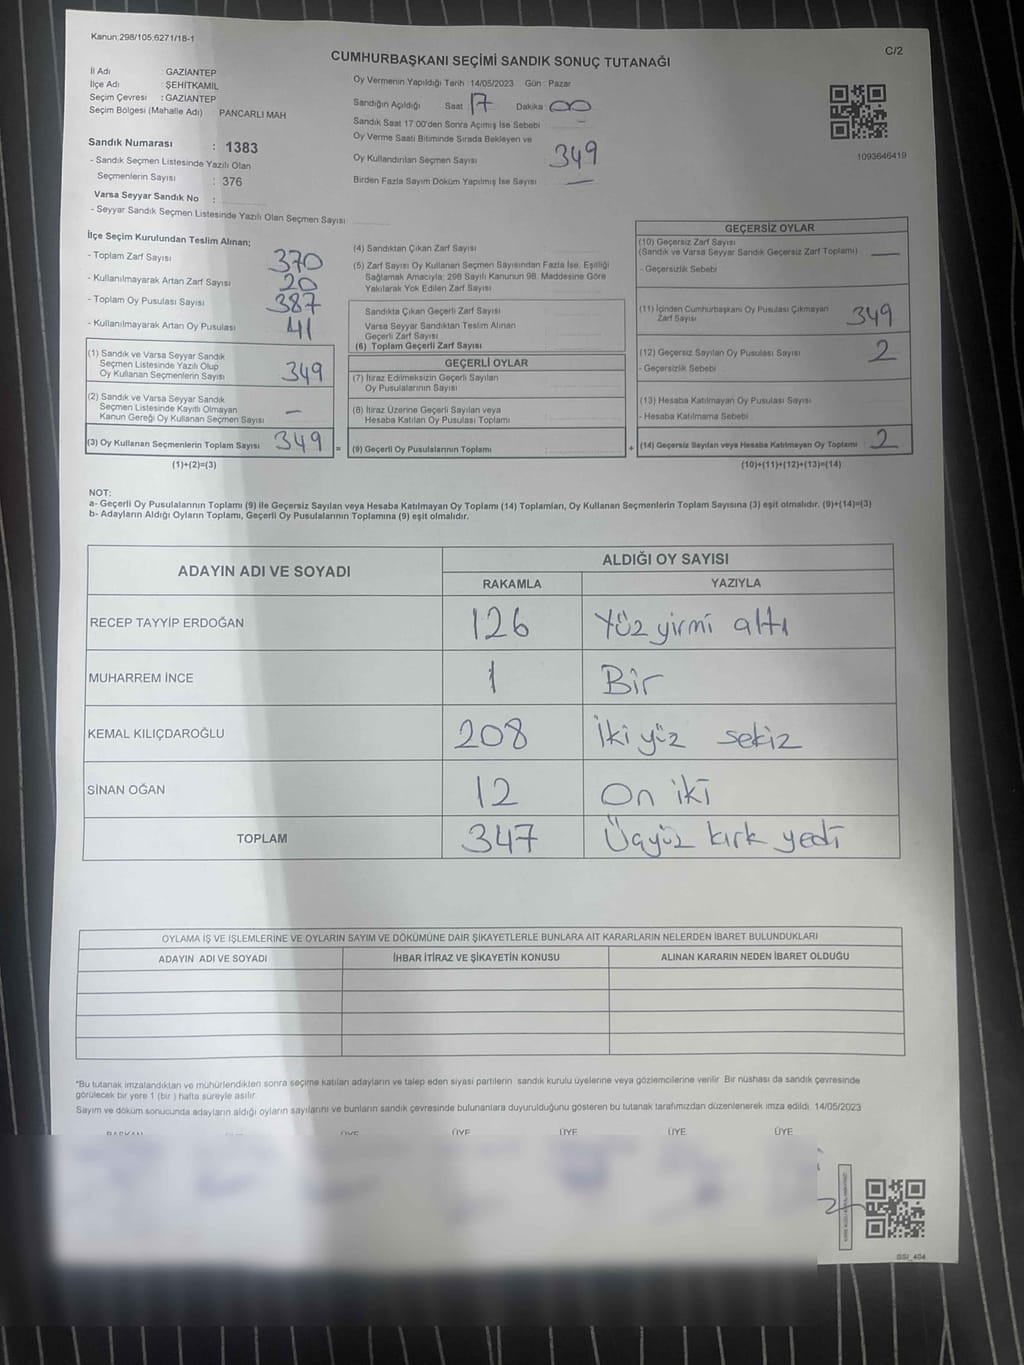 Kanun;298/105;6271/18-1
C/2
CUMHURBAŞKANI SEÇİMİ SANDIK SONUÇ TUTANAĞI
İl Adı : GAZİANTEP
İlçe Adı : ŞEHİTKAMİL
Seçim Çevresi : GAZİANTEP
Seçim Bölgesi (Mahalle Adı) PANCARLI MAH
Sandık Numarası : 1383
- Sandık Seçmen Listesinde Yazılı Olan
Seçmenlerin Sayısı : 376
Varsa Seyyar Sandık No :
- Seyyar Sandık Seçmen Listesinde Yazılı Olan Seçmen Sayısı
Oy Vermenin Yapıldığı Tarih :14/05/2023 Gün : Pazar
Sandığın Açıldığı Saat 17 Dakika 00
Sandık Saat 17:00'den Sonra Açımış İse Sebebi
Oy Verme Saati Bitiminde Sırada Bekleyen ve
Oy Kullandırılan Seçmen Sayısı 349
Birden Fazla Sayım Döküm Yapılmış İse Sayısı —
1093646419
İlçe Seçim Kurulundan Teslim Alınan;
- Toplam Zarf Sayısı 370
- Kullanılmayarak Artan Zarf Sayısı 20
- Toplam Oy Pusulası Sayısı 387
- Kullanılmayarak Artan Oy Pusulası 41
(1) Sandık ve Varsa Seyyar Sandık
Seçmen Listesinde Yazılı Olup
Oy Kullanan Seçmenlerin Sayısı 349
(2) Sandık ve Varsa Seyyar Sandık
Seçmen Listesinde Kayıtlı Olmayan
Kanun Gereği Oy Kullanan Seçmen Sayısı —
(3) Oy Kullanan Seçmenlerin Toplam Sayısı 349 =
(1)+(2)=(3)
(4) Sandıktan Çıkan Zarf Sayısı
(5) Zarf Sayısı Oy Kullanan Seçmen Sayısından Fazla İse, Eşitliği
Sağlamak Amacıyla; 298 Sayılı Kanunun 98. Maddesine Göre
Yakılarak Yok Edilen Zarf Sayısı
Sandıkta Çıkan Geçerli Zarf Sayısı
Varsa Seyyar Sandıktan Teslim Alınan
Geçerli Zarf Sayısı
(6) Toplam Geçerli Zarf Sayısı
GEÇERLİ OYLAR
(7) İtiraz Edilmeksizin Geçerli Sayılan
Oy Pusulalarının Sayısı
(8) İtiraz Üzerine Geçerli Sayılan veya
Hesaba Katılan Oy Pusulası Toplamı
(9) Geçerli Oy Pusulalarının Toplamı +
GEÇERSİZ OYLAR
(10) Geçersiz Zarf Sayısı
(Sandık ve Varsa Seyyar Sandık Geçersiz Zarf Toplamı) —
- Geçersizlik Sebebi
(11) İçinden Cumhurbaşkanı Oy Pusulası Çıkmayan
Zarf Sayısı 349
(12) Geçersiz Sayılan Oy Pusulası Sayısı 2
- Geçersizlik Sebebi
(13) Hesaba Katılmayan Oy Pusulası Sayısı
- Hesaba Katılmama Sebebi
(14) Geçersiz Sayılan veya Hesaba Katılmayan Oy Toplamı 2
(10)+(11)+(12)+(13)=(14)
NOT:
a- Geçerli Oy Pusulalarının Toplamı (9) ile Geçersiz Sayılan veya Hesaba Katılmayan Oy Toplamı (14) Toplamları, Oy Kullanan Seçmenlerin Toplam Sayısına (3) eşit olmalıdır. (9)+(14)=(3)
b- Adayların Aldığı Oyların Toplamı, Geçerli Oy Pusulalarının Toplamına (9) eşit olmalıdır.
ADAYIN ADI VE SOYADI ALDIĞI OY SAYISI
RAKAMLA YAZIYLA
RECEP TAYYİP ERDOĞAN 126 Yüz yirmi altı
MUHARREM İNCE 1 Bir
KEMAL KILIÇDAROĞLU 208 İki yüz sekiz
SİNAN OĞAN 12 On iki
TOPLAM 347 Üçyüz kırk yedi
OYLAMA İŞ VE İŞLEMLERİNE VE OYLARIN SAYIM VE DÖKÜMÜNE DAİR ŞİKAYETLERLE BUNLARA AİT KARARLARIN NELERDEN İBARET BULUNDUKLARI
ADAYIN ADI VE SOYADI İHBAR İTİRAZ VE ŞİKAYETİN KONUSU ALINAN KARARIN NEDEN İBARET OLDUĞU
*Bu tutanak imzalandıktan ve mühürlendikten sonra seçime katılan adayların ve talep eden siyasi partilerin sandık kurulu üyelerine veya gözlemcilerine verilir. Bir nüshası da sandık çevresinde
görülecek bir yere 1 (bir ) hafta süreyle asılır.
Sayım ve döküm sonucunda adayların aldığı oyların sayılarını ve bunların sandık çevresinde bulunanlara duyurulduğunu gösteren bu tutanak tarafımızdan düzenlenerek imza edildi. 14/05/2023
BAŞKAN ÜYE ÜYE ÜYE ÜYE ÜYE
GSI_404